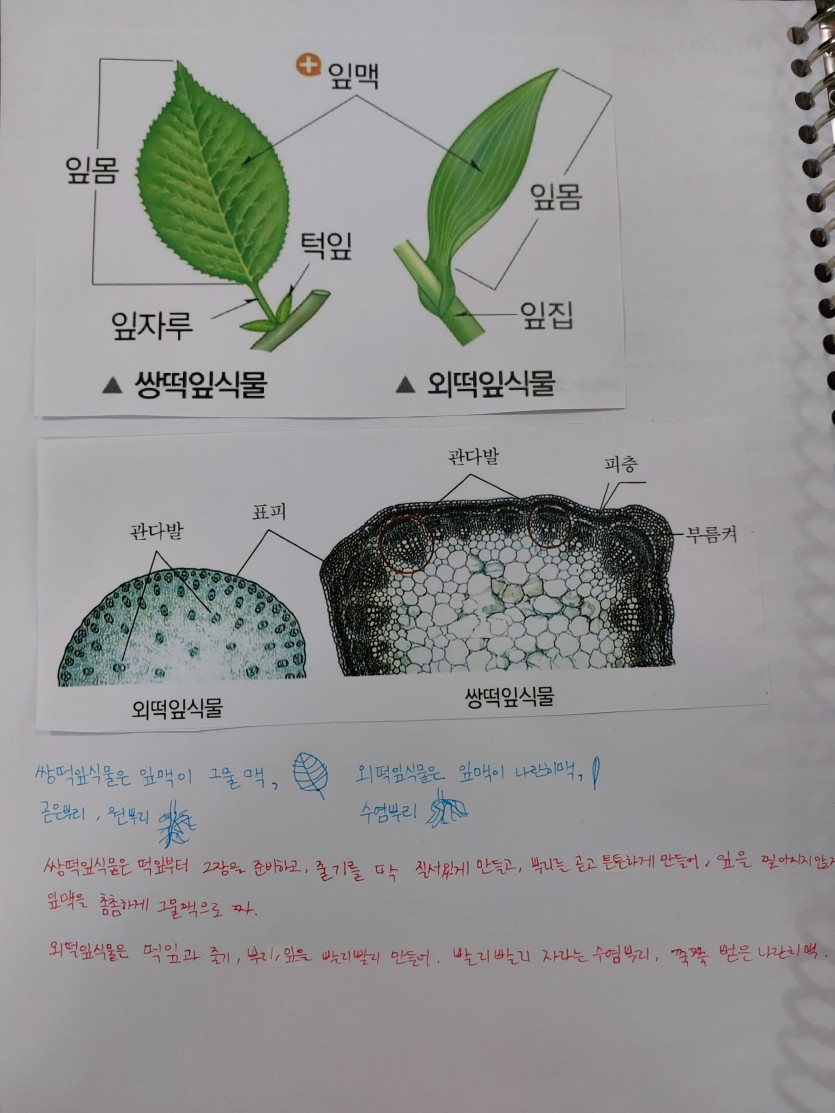 잎맥
잎몸
잎몸
턱잎
잎자루
잎집
▲ 쌍떡잎식물
▲ 외떡잎식물
관다발
피층
표피
관다발
부름켜
외떡잎식물
쌍떡잎식물
쌍떡잎식물은 잎맥이 그물맥,
외떡잎식물은 잎맥이 나란히맥,
곧은뿌리, 원뿌리
수염뿌리
쌍떡잎식물은 떡잎부터 2장을 준비하고, 줄기를 딱 질서있게 만들고, 뿌리는 곧고 튼튼하게 만들어, 잎을 떨어지지않게
잎맥을 촘촘하게 그물맥으로 짜.
외떡잎식물은 떡잎과 줄기, 뿌리, 잎을 빨리빨리 만들어. 빨리빨리 자라는 수염뿌리, 쭉쭉 뻗은 나란히맥.